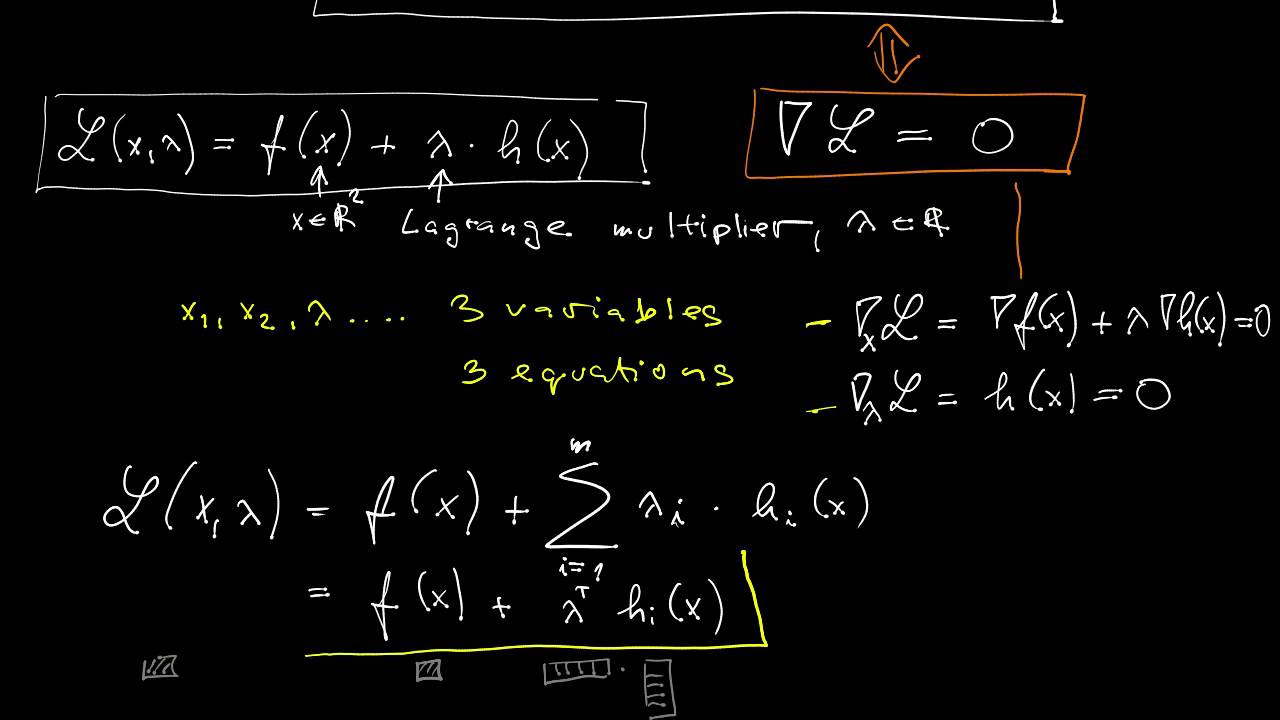 ℒ(x,λ) = f(x) + λ · h(x)
∇ℒ = 0
x∈ℝ²
Lagrange multiplier, λ∈ℝ
x₁, x₂, λ .... 3 variables
3 equations
– ∇ₓℒ = ∇f(x) + λ∇h(x) = 0
– ∇_λ ℒ = h(x) = 0
ℒ(x,λ) = f(x) + ∑_{i=1}^{m} λᵢ · hᵢ(x)
= f(x) + λᵀ hᵢ(x)